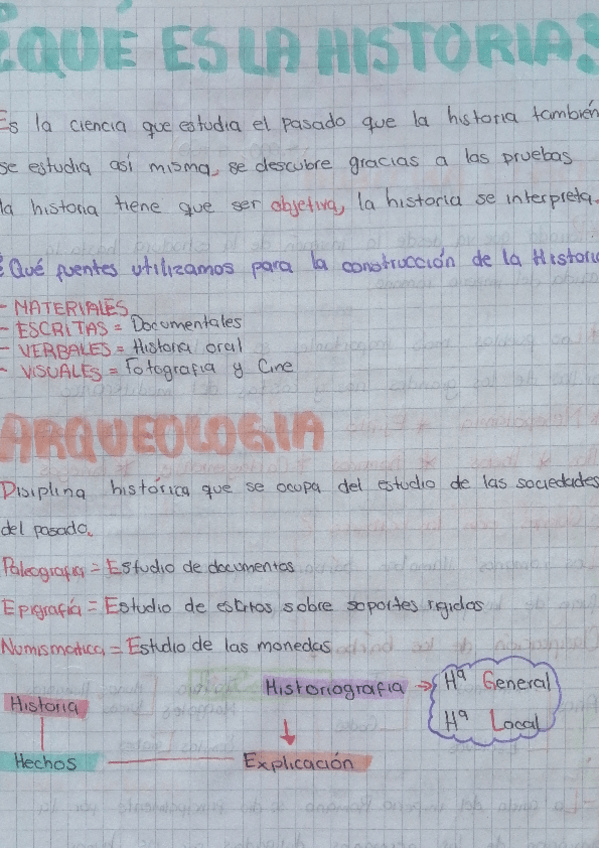 ¿QUÉ ES LA HISTORIA?
Es la ciencia que estudia el pasado que la historia también
se estudia así misma, se descubre gracias a las pruebas
la historia tiene que ser objetiva, la historia se interpreta.
¿Qué fuentes utilizamos para la construcción de la Historia
- MATERIALES
- ESCRITAS = Documentales
- VERBALES = Historia oral
- VISUALES = Fotografia y Cine
ARQUEOLOGIA
Disiplina histórica que se ocupa del estudio de las sociedades
del pasado.
Paleografia = Estudio de documentos
Epigrafía = Estudio de escritos sobre soportes rigidos
Numismatica = Estudio de las monedas
Historiografia → Hª General
Hª Local
Historia
Hechos Explicación